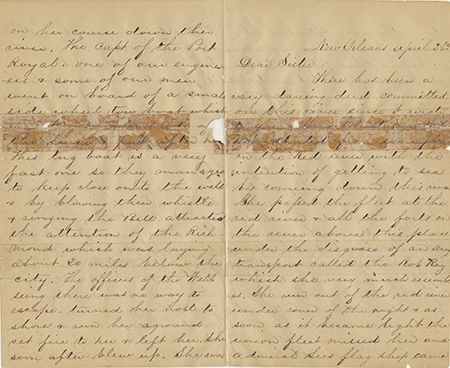 New Orleans April 26th
Dear Sister
There has been a
very daring deed committed
on this river since I wrote
on the Red river with the
intention of getting to sea
by coming down this river
She passed the fleet at the
red river & all the forts on
the river above this place
under the disguise of an army
transport called the Rob Roy
which she very much resembl
es. She run out of the red river
under cover of the night & as
soon as it became light the
union fleet missed her and
admiral Lees flag ship came
on her course down the
river. The Capt of the Port
Royal & one of our engine
ers & some of our men
went on board of a small
side wheel tow boat which
this tug boat is a very
fast one so they managed
to keep close onto the webb
& by blowing their whistle
& ringing the Bell attracted
the attention of the Rich
mond which was laying
about 20 miles below the
city. The officers of the Webb
seing there was no way to
escape turned her host to
shore & run her aground
set fire to her & left her She
soon after blew up. She was